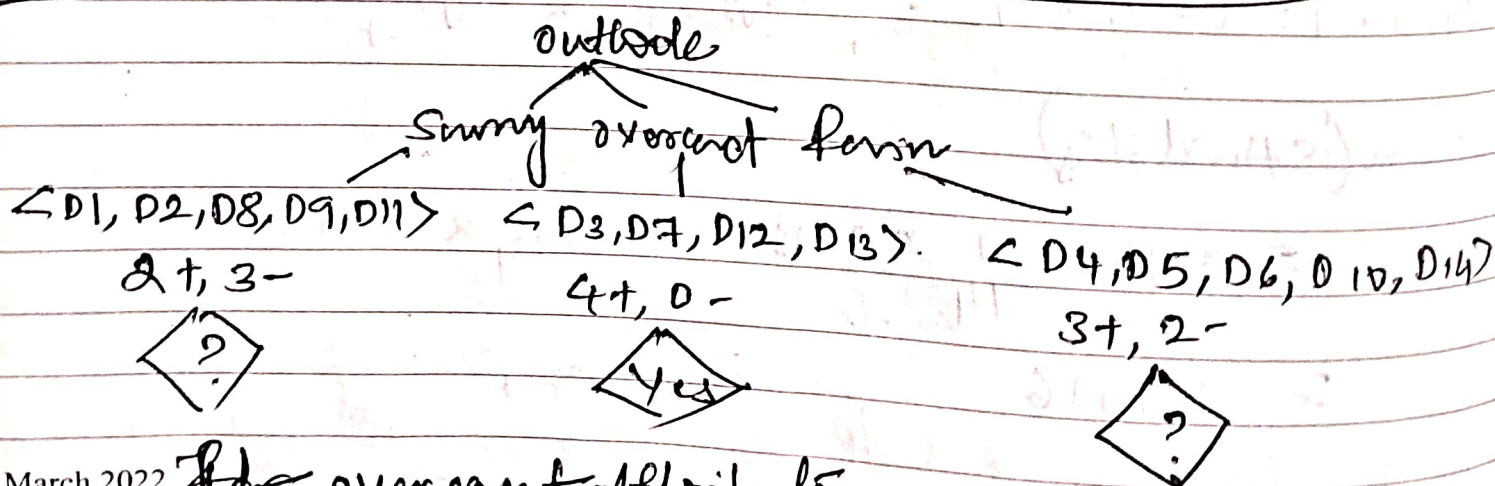 outlook
Sunny overcast Rain
<D1, D2, D8, D9, D11> <D3, D7, D12, D13>. <D4, D5, D6, D10, D14>
2+, 3- 4+, 0- 3+, 2-
? Yes ?
March 2022